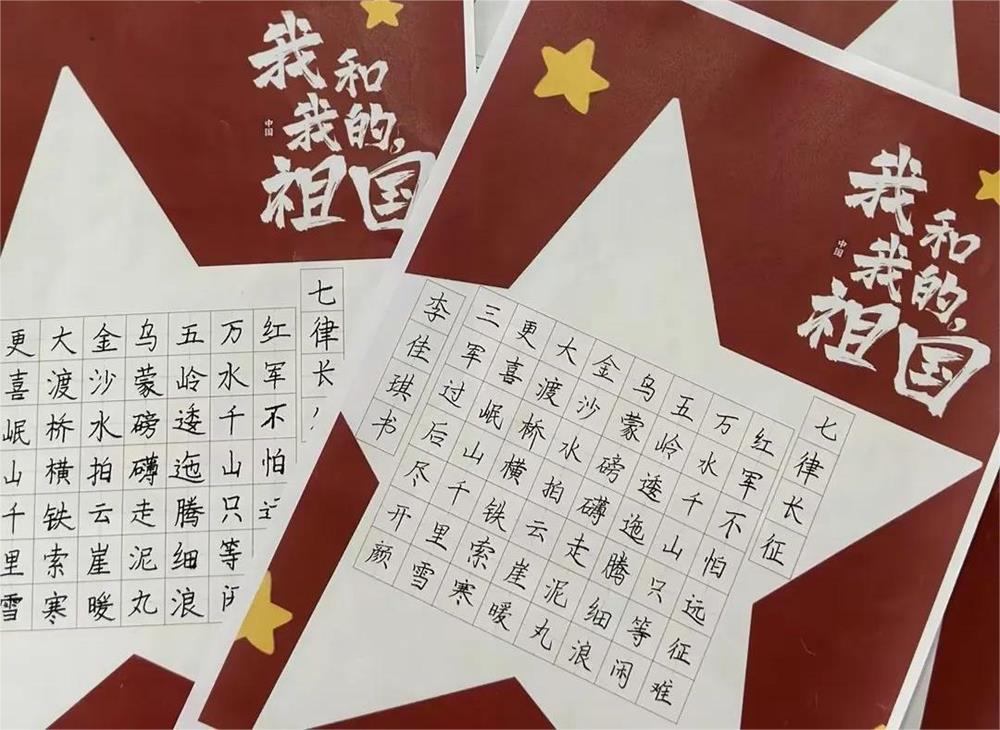 我和
我的,
祖国
中国
七律长
红军不怕
万水千山只等
五岭逶迤腾细浪
乌蒙磅礴走泥丸
金沙水拍云崖暖
大渡桥横铁索寒
更喜岷山千里雪
我和
我的,
祖国
中国
七律长征
红军不怕远征难
万水千山只等闲
五岭逶迤腾细浪
乌蒙磅礴走泥丸
金沙水拍云崖暖
大渡桥横铁索寒
更喜岷山千里雪
三军过后尽开颜
李佳琪书